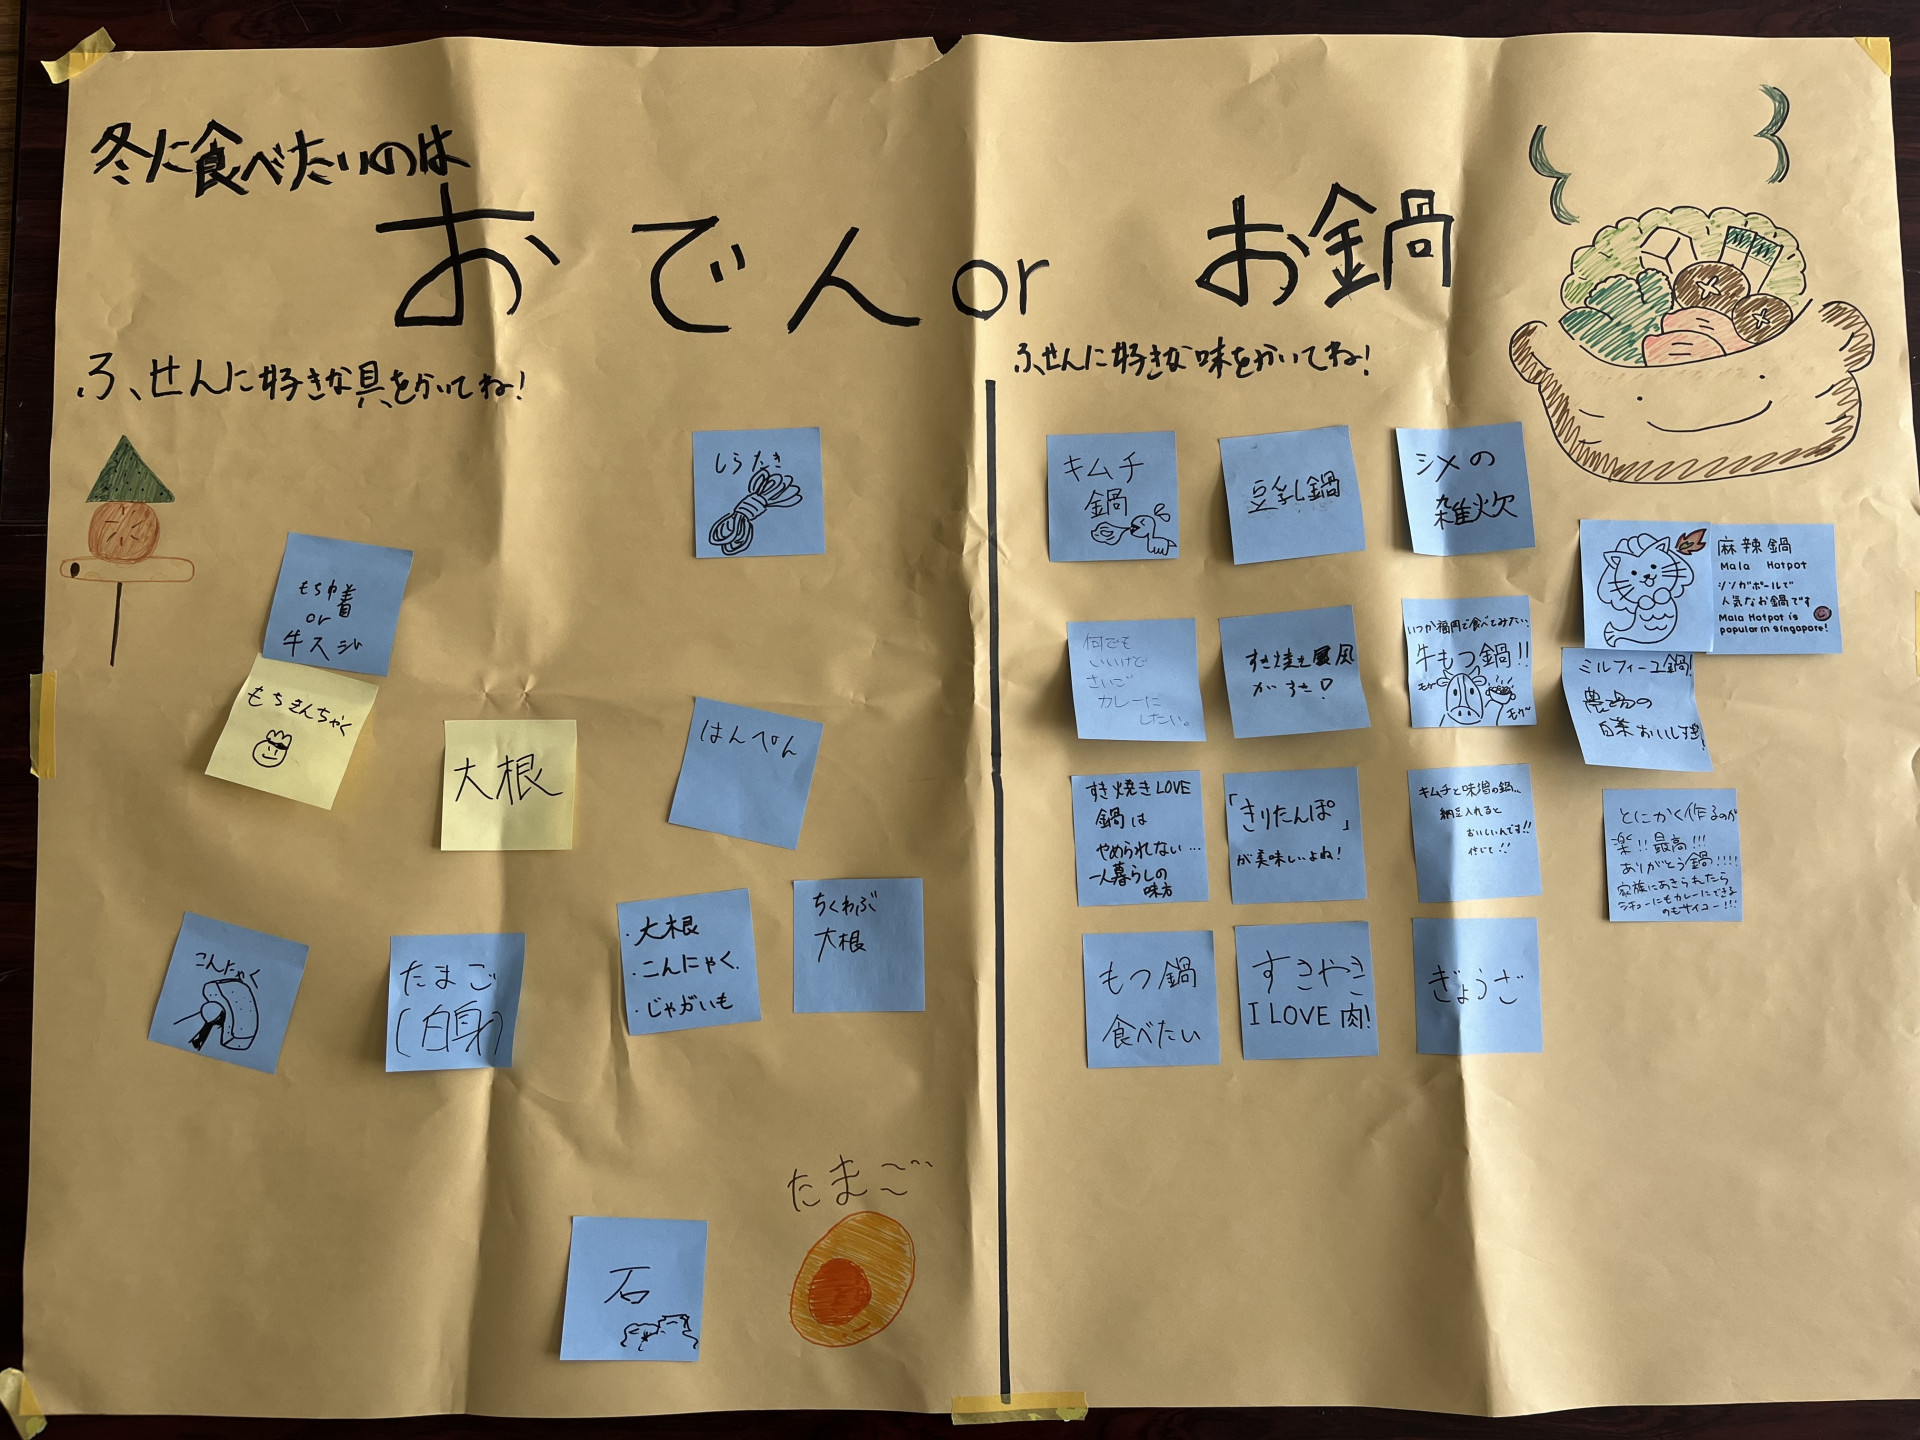 冬に食べたいのは
おでん or お鍋
ふせんに好きな具をかいてね!
しらたき
もち巾着
or
牛スジ
もちきんちゃく
大根
はんぺん
こんにゃく
たまご
(白身)
・大根
・こんにゃく
・じゃがいも
ちくわぶ
大根
石
たまご
ふせんに好きな味をかいてね!
キムチ
鍋
豆乳鍋
シメの
雑炊
麻辣鍋
Mala Hotpot
シンガポールで
人気なお鍋です
Mala Hotpot is
popular in singapore!
何でも
いいけど
さいご
カレーに
したい。
すき焼き風
がすき!
いつか福岡で食べてみたい…
牛もつ鍋!!
モグ〜
モグ〜
ミルフィーユ鍋!
農場の
白菜おいしすぎ!
すき焼きLOVE
鍋は
やめられない…
一人暮らしの
味方
「きりたんぽ」
が美味しいよね!
キムチと味噌の鍋…
納豆入れると
おいしいんです!!
信じて!!
とにかく作るのが
楽!!最高!!!
ありがとう鍋!!!!
家族にあきられたら
シチューにもカレーにできる
のもサイコー!!!
もつ鍋
食べたい
すきやき
I LOVE 肉!
ぎょうざ